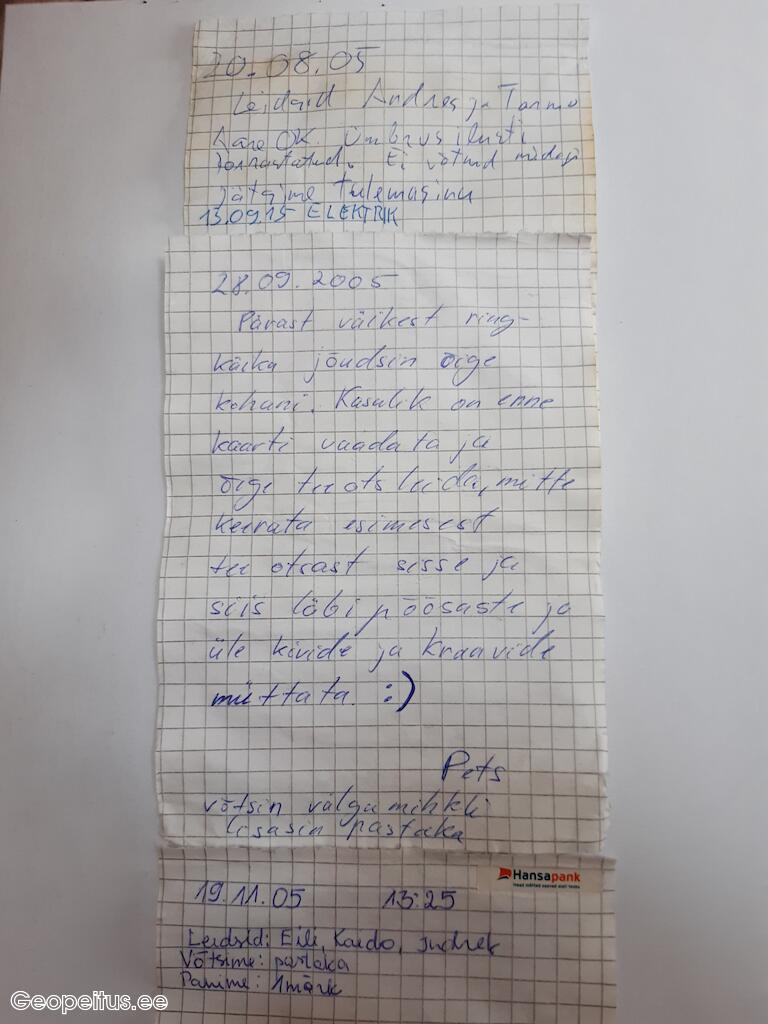 20.08.05
Leidsid Andres ja Tarmo
Aare OK. Ümbrus ilusti
korrastatud. Ei võtnud midagi
jätsime tulemasina
13.09.15 ELEKTRIK
28.09.2005
Pärast väikest ring-
käiku jõudsin õige
kohani. Kasulik on enne
kaarti vaadata ja
õige tee ots leida, mitte
keerata esimesest
tee otsast sisse ja
siis läbi põõsaste ja
üle kivide ja kraavide
müttata. :)
Pets
võtsin välgumihkli
lisasin pastaka
Hansapank
19.11.05 13:25
Leidsid: Eili, Kaido, Indrek
Võtsime: pastaka
Panime: 1 märk
Geopeitus.ee